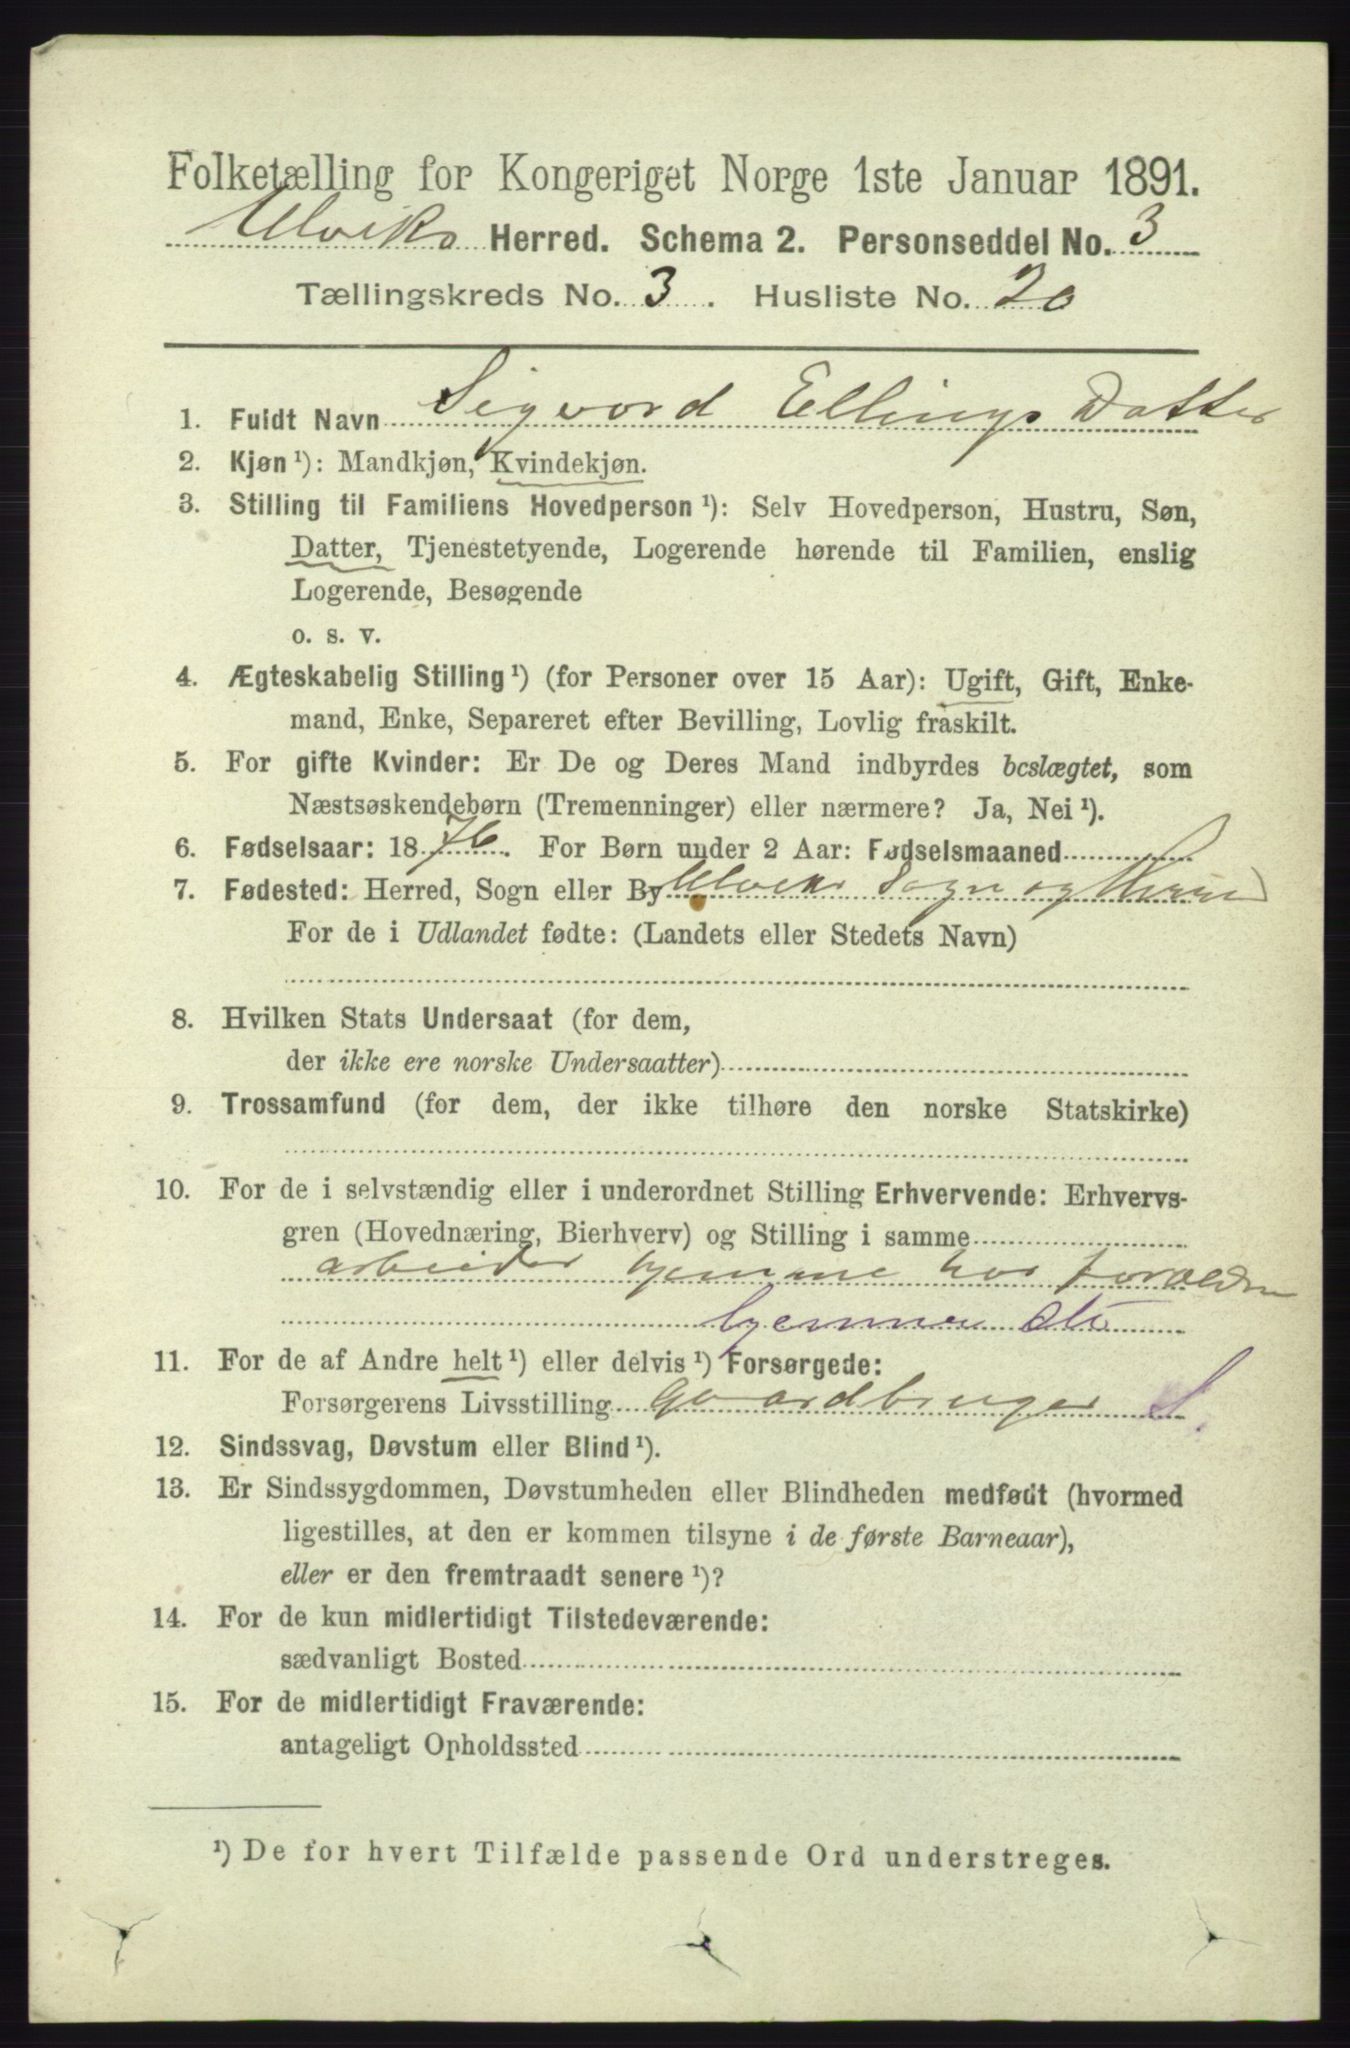 Folketælling for Kongeriget Norge 1ste Januar 1891.
Ulviks Herred. Schema 2. Personseddel No. 3
Tællingskreds No. 3. Husliste No. 20
1. Fuldt Navn Sigvord Ellings Datter
2. Kjøn ¹): Mandkjøn, Kvindekjøn.
3. Stilling til Familiens Hovedperson ¹): Selv Hovedperson, Hustru, Søn,
Datter, Tjenestetyende, Logerende hørende til Familien, enslig
Logerende, Besøgende
o. s. v.
4. Ægteskabelig Stilling ¹) (for Personer over 15 Aar): Ugift, Gift, Enke-
mand, Enke, Separeret efter Bevilling, Lovlig fraskilt.
5. For gifte Kvinder: Er De og Deres Mand indbyrdes beslægtet, som
Næstsøskendebørn (Tremenninger) eller nærmere? Ja, Nei ¹).
6. Fødselsaar: 1876. For Børn under 2 Aar: Fødselsmaaned
7. Fødested: Herred, Sogn eller By Ulviks Sogn og Herred
For de i Udlandet fødte: (Landets eller Stedets Navn)
8. Hvilken Stats Undersaat (for dem,
der ikke ere norske Undersaatter)
9. Trossamfund (for dem, der ikke tilhøre den norske Statskirke)
10. For de i selvstændig eller i underordnet Stilling Erhvervende: Erhvervs-
gren (Hovednæring, Bierhverv) og Stilling i samme
arbeider hjemme hos foreldre
11. For de af Andre helt ¹) eller delvis ¹) Forsørgede:
Forsørgerens Livsstilling Gaardbruger S.
12. Sindssvag, Døvstum eller Blind ¹).
13. Er Sindssygdommen, Døvstumheden eller Blindheden medfødt (hvormed
ligestilles, at den er kommen tilsyne i de første Barneaar),
eller er den fremtraadt senere ¹)?
14. For de kun midlertidigt Tilstedeværende:
sædvanligt Bosted
15. For de midlertidigt Fraværende:
antageligt Opholdssted
¹) De for hvert Tilfælde passende Ord understreges.